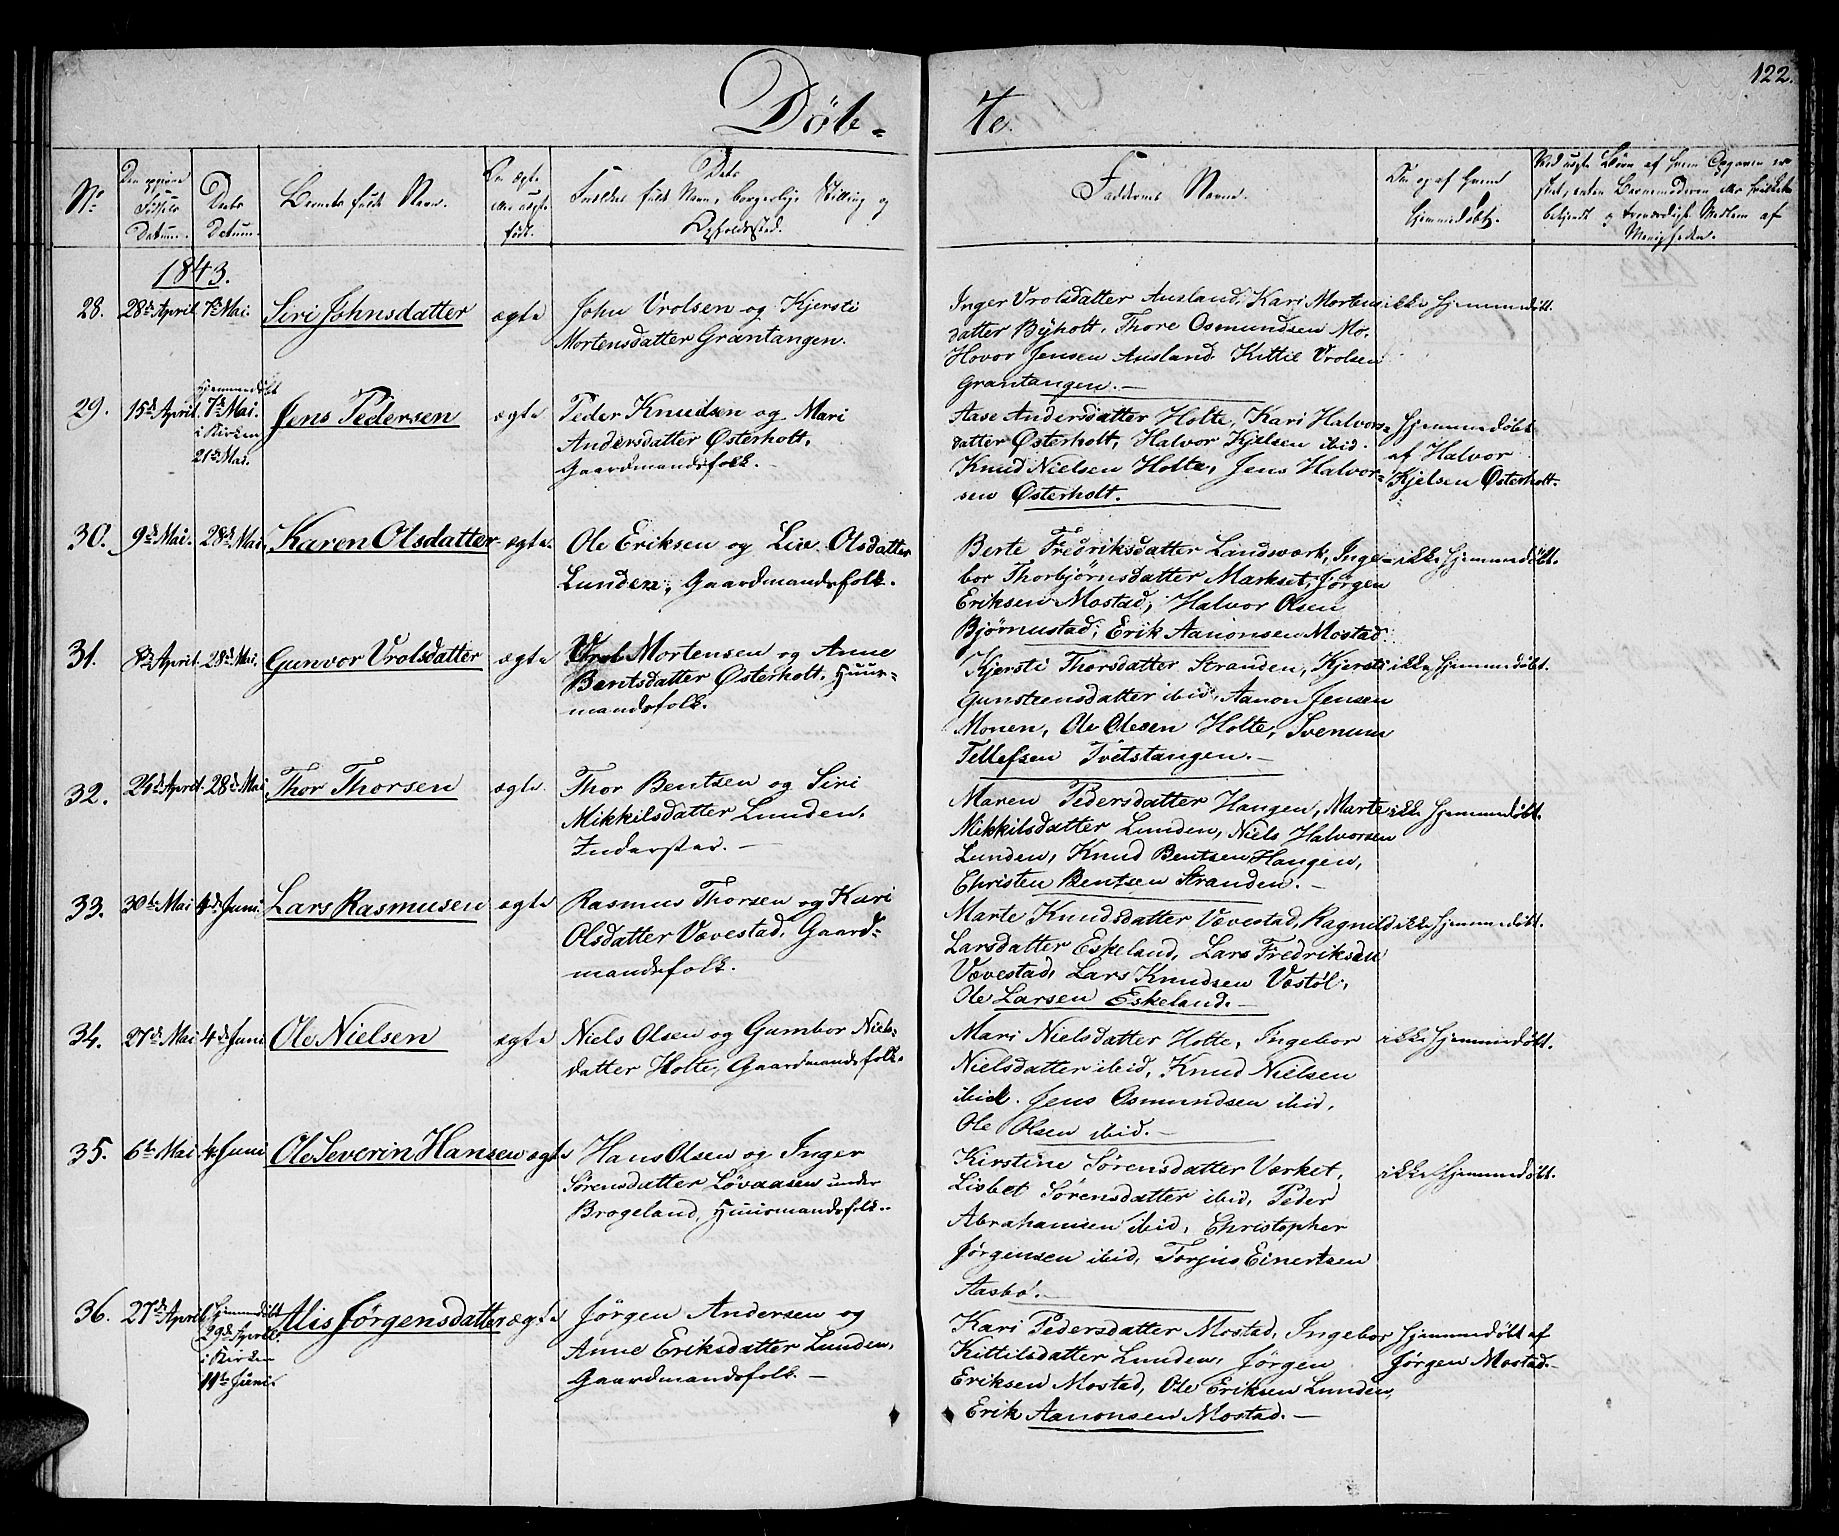 122.
Döb-
te.
No.
Den opgivne Fødsels Datum.
Daabs Datum.
Barnets fulde Navn.
Om ægte eller uægte født.
Dets Forældres fulde Navn, borgerlige Stilling og Opholdssted.
Faddernes Navne.
Om og af hvem hjemmedøbt.
1843.
28. 28de April 7de Mai. Siri Johnsdatter ægte John Vrolsen og Kjersti
Mortensdatter Grantangen.
Inger Vrolsdatter Ausland, Kari Mortens
datter Byholt, Thore Osmundsen Mo,
Hovor Jensen Ausland. Kittil Vrolsen
Grantangen.—
ikke hjemmedøbt.
29. 15de April. Hjemmedøbt
7de Mai.
i Kirken
21de Mai.
Jens Pedersen ægte Peder Knudsen og Mari
Andersdatter Østerholt,
Gaardmandsfolk.—
Aase Andersdatter Holte, Kari Halvors-
datter Østerholt, Halvor Kjelsen ibid.
Knud Nielsen Holte, Jens Halvor-
sen Østerholt.
Hjemmedøbt
af Halvor
Kjelsen Østerholt.
30. 9de Mai. 28de Mai. Karen Olsdatter ægte. Ole Eriksen og Live Olsdatter
Lunden, Gaardmandsfolk.
Berte Fredriksdatter Landsværk, Inge-
bor Thorbjørnsdatter Markset, Jørgen
Eriksen Mostad, Halvor Olsen
Bjørnustad, Erik Aanonsen Mostad.
ikke hjemmedøbt.
31. 8de April 28de Mai. Gunvor Vrolsdatter ægte Vrol Mortensen og Anne
Berntsdatter Østerholt, Huus-
mandsfolk.
Kjersti Thorsdatter Stranden, Kjersti
Gunsteensdatter ibid, Aanon Jensen
Monen, Ole Olesen Holte, Svenum
Tellefsen Tvetstangen.—
ikke hjemmedøbt.
32. 26de April. 28de Mai Thor Thorsen ægte. Thor Bentsen og Siri
Mikkilsdatter Lunden,
Inderster.—
Maren Pedersdatter Haugen, Marte
Mikkilsdatter Lunden, Niels Halvorsen
Lunden, Knud Bentsen Haugen,
Christen Bentsen Stranden.—
ikke hjemmedøbt.
33. 30te Mai 4de Juni. Lars Rasmusen ægte Rasmus Thorsen og Kari
Olsdatter Vævestad, Gaard-
mandsfolk.
Marte Knudsdatter Vævestad, Ragnild
Larsdatter Eskeland, Lars Fredriksen
Vævestad, Lars Knudsen Vestøl,
Ole Larsen Eskeland.—
ikke hjemmedøbt.
34. 27de Mai 4de Juni Ole Nielsen ægte Niels Olsen og Gumbor Niels-
datter Holte, Gaardmandsfolk.
Mari Nielsdatter Holte, Ingebor
Nielsdatter ibid, Knud Nielsen
ibid. Jens Osmundsen ibid,
Ole Olsen ibid.—
ikke hjemmedøbt.
35. 6te Mai 4de Juni Ole Severin Hansen ægte Hans Olsen og Inger
Sørensdatter Løvaasen under
Brogeland, Huusmandsfolk.
Kirstine Sørensdatter Værket,
Lisbet Sørensdatter ibid, Peder
Abrahamsen ibid, Christopher
Jørgensen ibid, Torjus Einertsen
Aasbø.—
ikke hjemmedøbt.
36. 27de April Hjemmedøbt
29de April.
i Kirken
11te Juni.
Alis Jørgensdatter ægte Jørgen Andersen og
Anne Eriksdatter Lunden,
Gaardmandsfolk.—
Kari Pedersdatter Mostad, Ingebor
Kittilsdatter Lunden, Jørgen
Eriksen Mostad, Ole Eriksen Lunden,
Erik Aanonsen Mostad.—
hjemmedøbt af
Jørgen Mostad.—